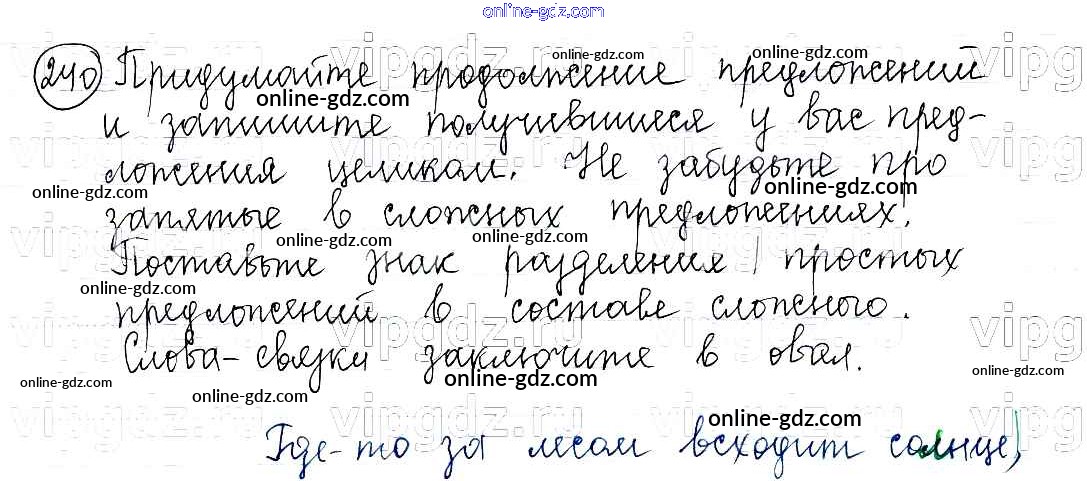 online-gdz.com
240 Придумайте продолжение предложений
и запишите получившиеся у вас пред-
ложения целиком. Не забудьте про
запятые в сложных предложениях!
Поставьте знак разделения | простых
предложений в составе сложного.
Слова-связки заключите в овал.
Где-то за лесом всходит солнце,